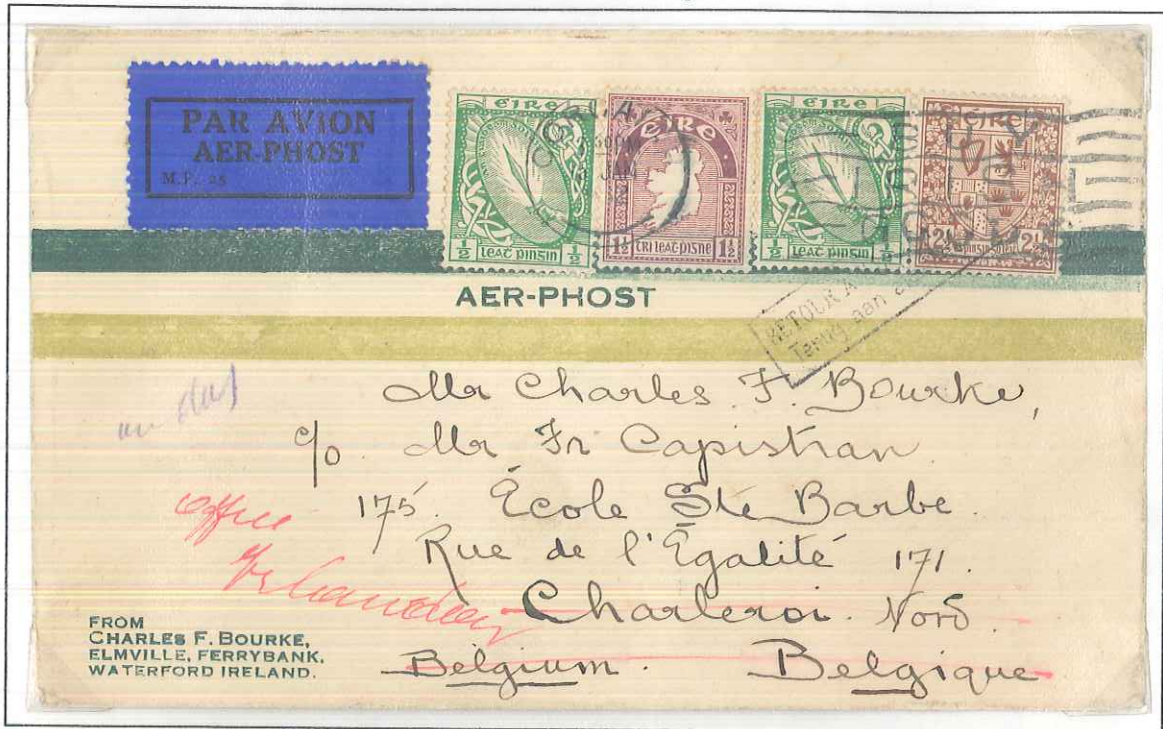 PAR AVION
AER-PHOST
M.P. 25
éire
½ leaċ pinsin ½
éire
1½ tri leaṫ-pisne 1½
éire
½ leaċ pinsin ½
éire
2½ 2½
PM
JAN
AER-PHOST
RETOUR A
Terug aan
Mr Charles F. Bourke,
c/o Mr Fr Capistran
175 École Ste Barbe.
Rue de l'Égalité 171.
Charleroi. Nord.
Belgium. Belgique
FROM
CHARLES F. BOURKE,
ELMVILLE, FERRYBANK,
WATERFORD IRELAND.